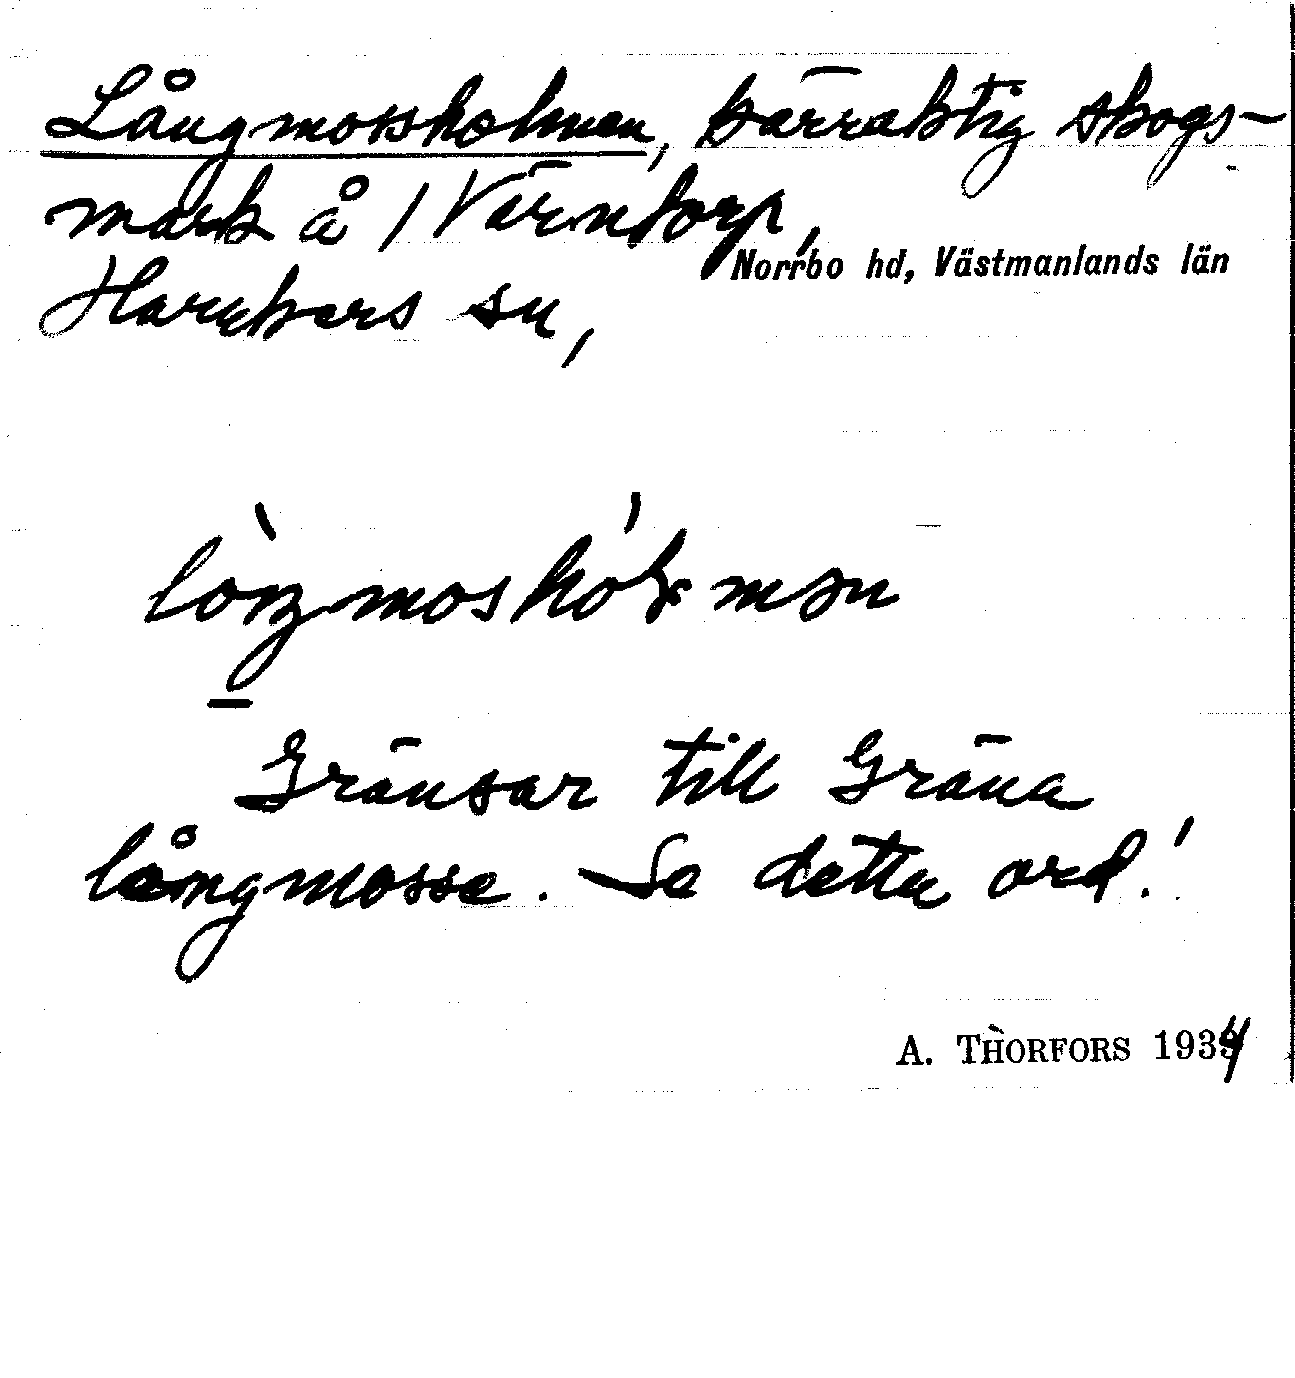 Långmossholmen, kärraktig skogs-
mark å /Värntorp,
Norrbo hd, Västmanlands län
Harakers sn,
Gränsar till Gräna
långmosse. Se detta ord!
A. THORFORS 1934